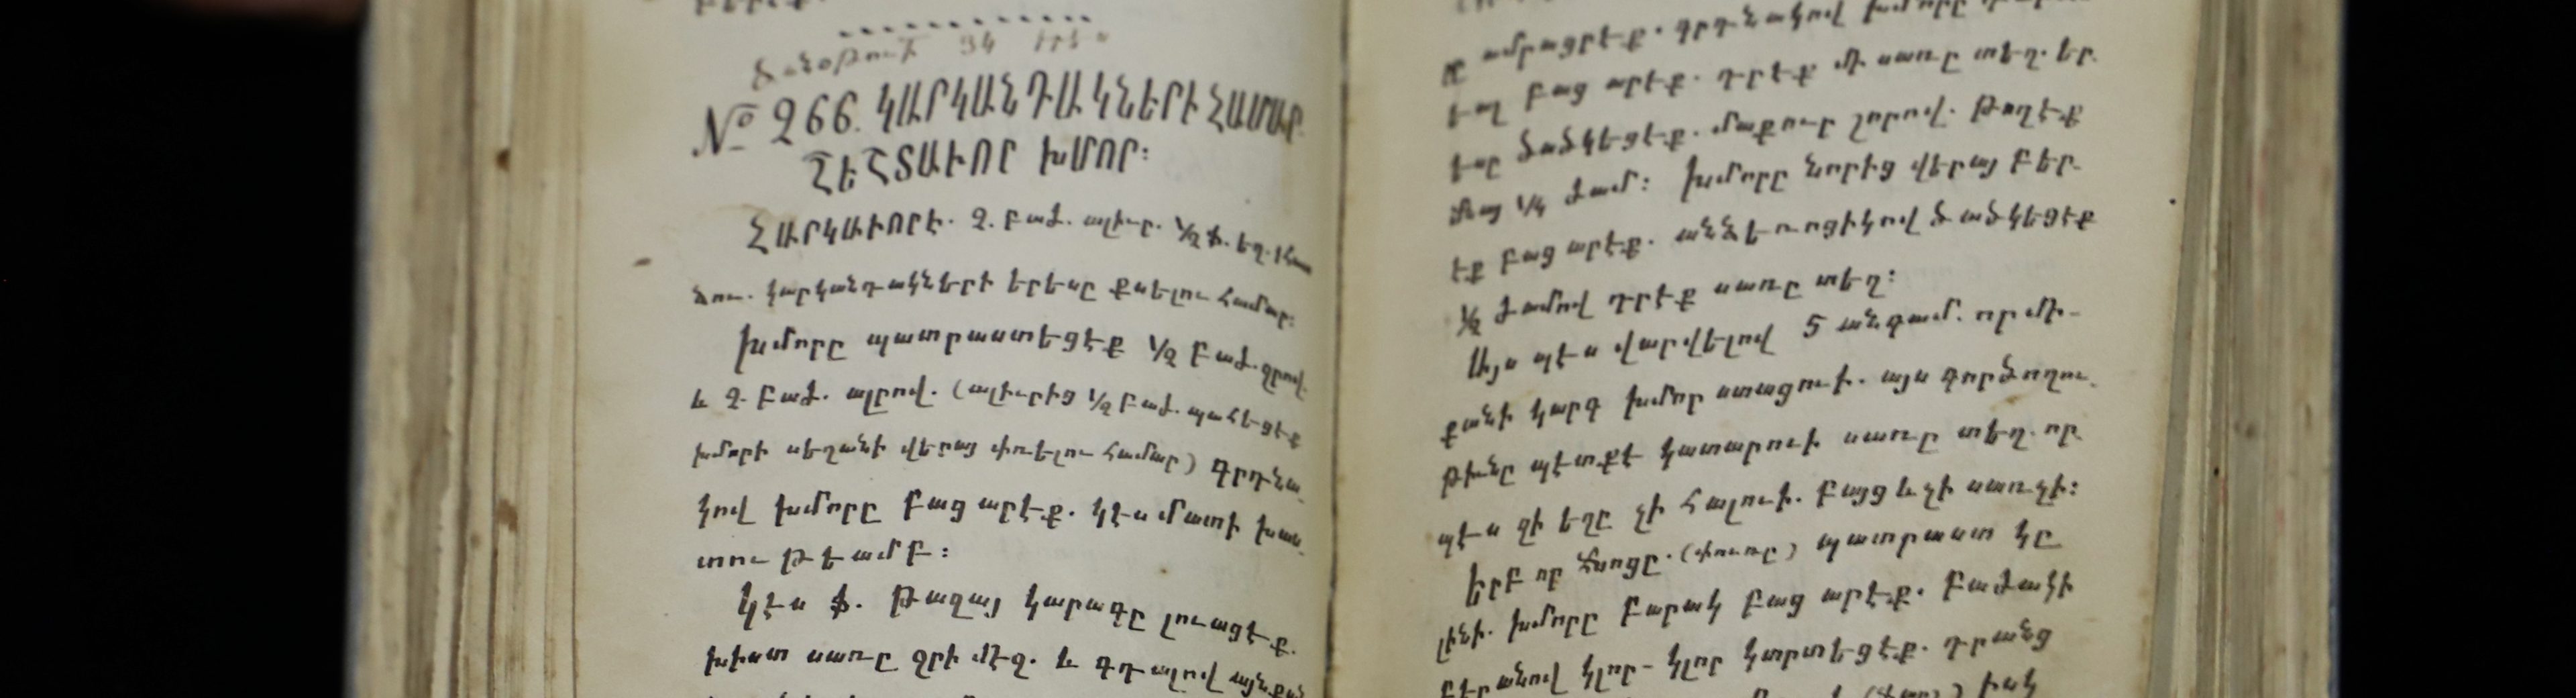 ծանօթութի 94 երես
№ 266. ԿԱՐԿԱՆԴԱԿՆԵՐԻ ՀԱՄԱՐ
ՇԵՇՏԱՒՈՐ ԽՄՈՐ:
ՀԱՐԿԱՒՈՐԷ. 2. բաժ. ալիւր. ½ ֆ. եղ. 1 հա
ձու. կարկանդակների երեսը քսելու համար:
խմորը պատրաստեցէք ½ բաժ. ջրով.
և 2. բաժ. ալրով. (ալիւրից ½ բաժ. պահեցէք
խմորի սեղանի վերայ փռելու համար) գրդնա
կով խմորը բաց արէք. կէս մատի խաս
տու թեամբ:
Կէս ֆ. թազայ կարագը լուացէք.
խիստ սառը ջրի մէջ. և գդալով այնքան
ամրացրէք. գրդնակով խմորը
եաղ բաց արէք. դրէք մի սառը տեղ. եր
եսը ծածկեցէք. մաքուր շորով. թողէք
մնայ ¼ ժամ: խմորը նորից վերայ բեր
էք բաց արէք. անձեռոցիկով ծածկեցէք
½ ժամով դրէք սառը տեղ:
Այս պէս վարվելով 5 անգամ. որ մի-
քանի կարգ խմոր ստացուի. այս գործողու
թիւնը պէտքէ կատարուի սառը տեղ. որ
պէս զի եղը չի հալուի. բայց և չի սառչի:
երբ որ հնոցը. (փուռը) պատրաստ կը
լինի. խմորը բարակ բաց արէք. բաժակի
բերանով կլոր-կլոր կտրտեցէք. դրանց